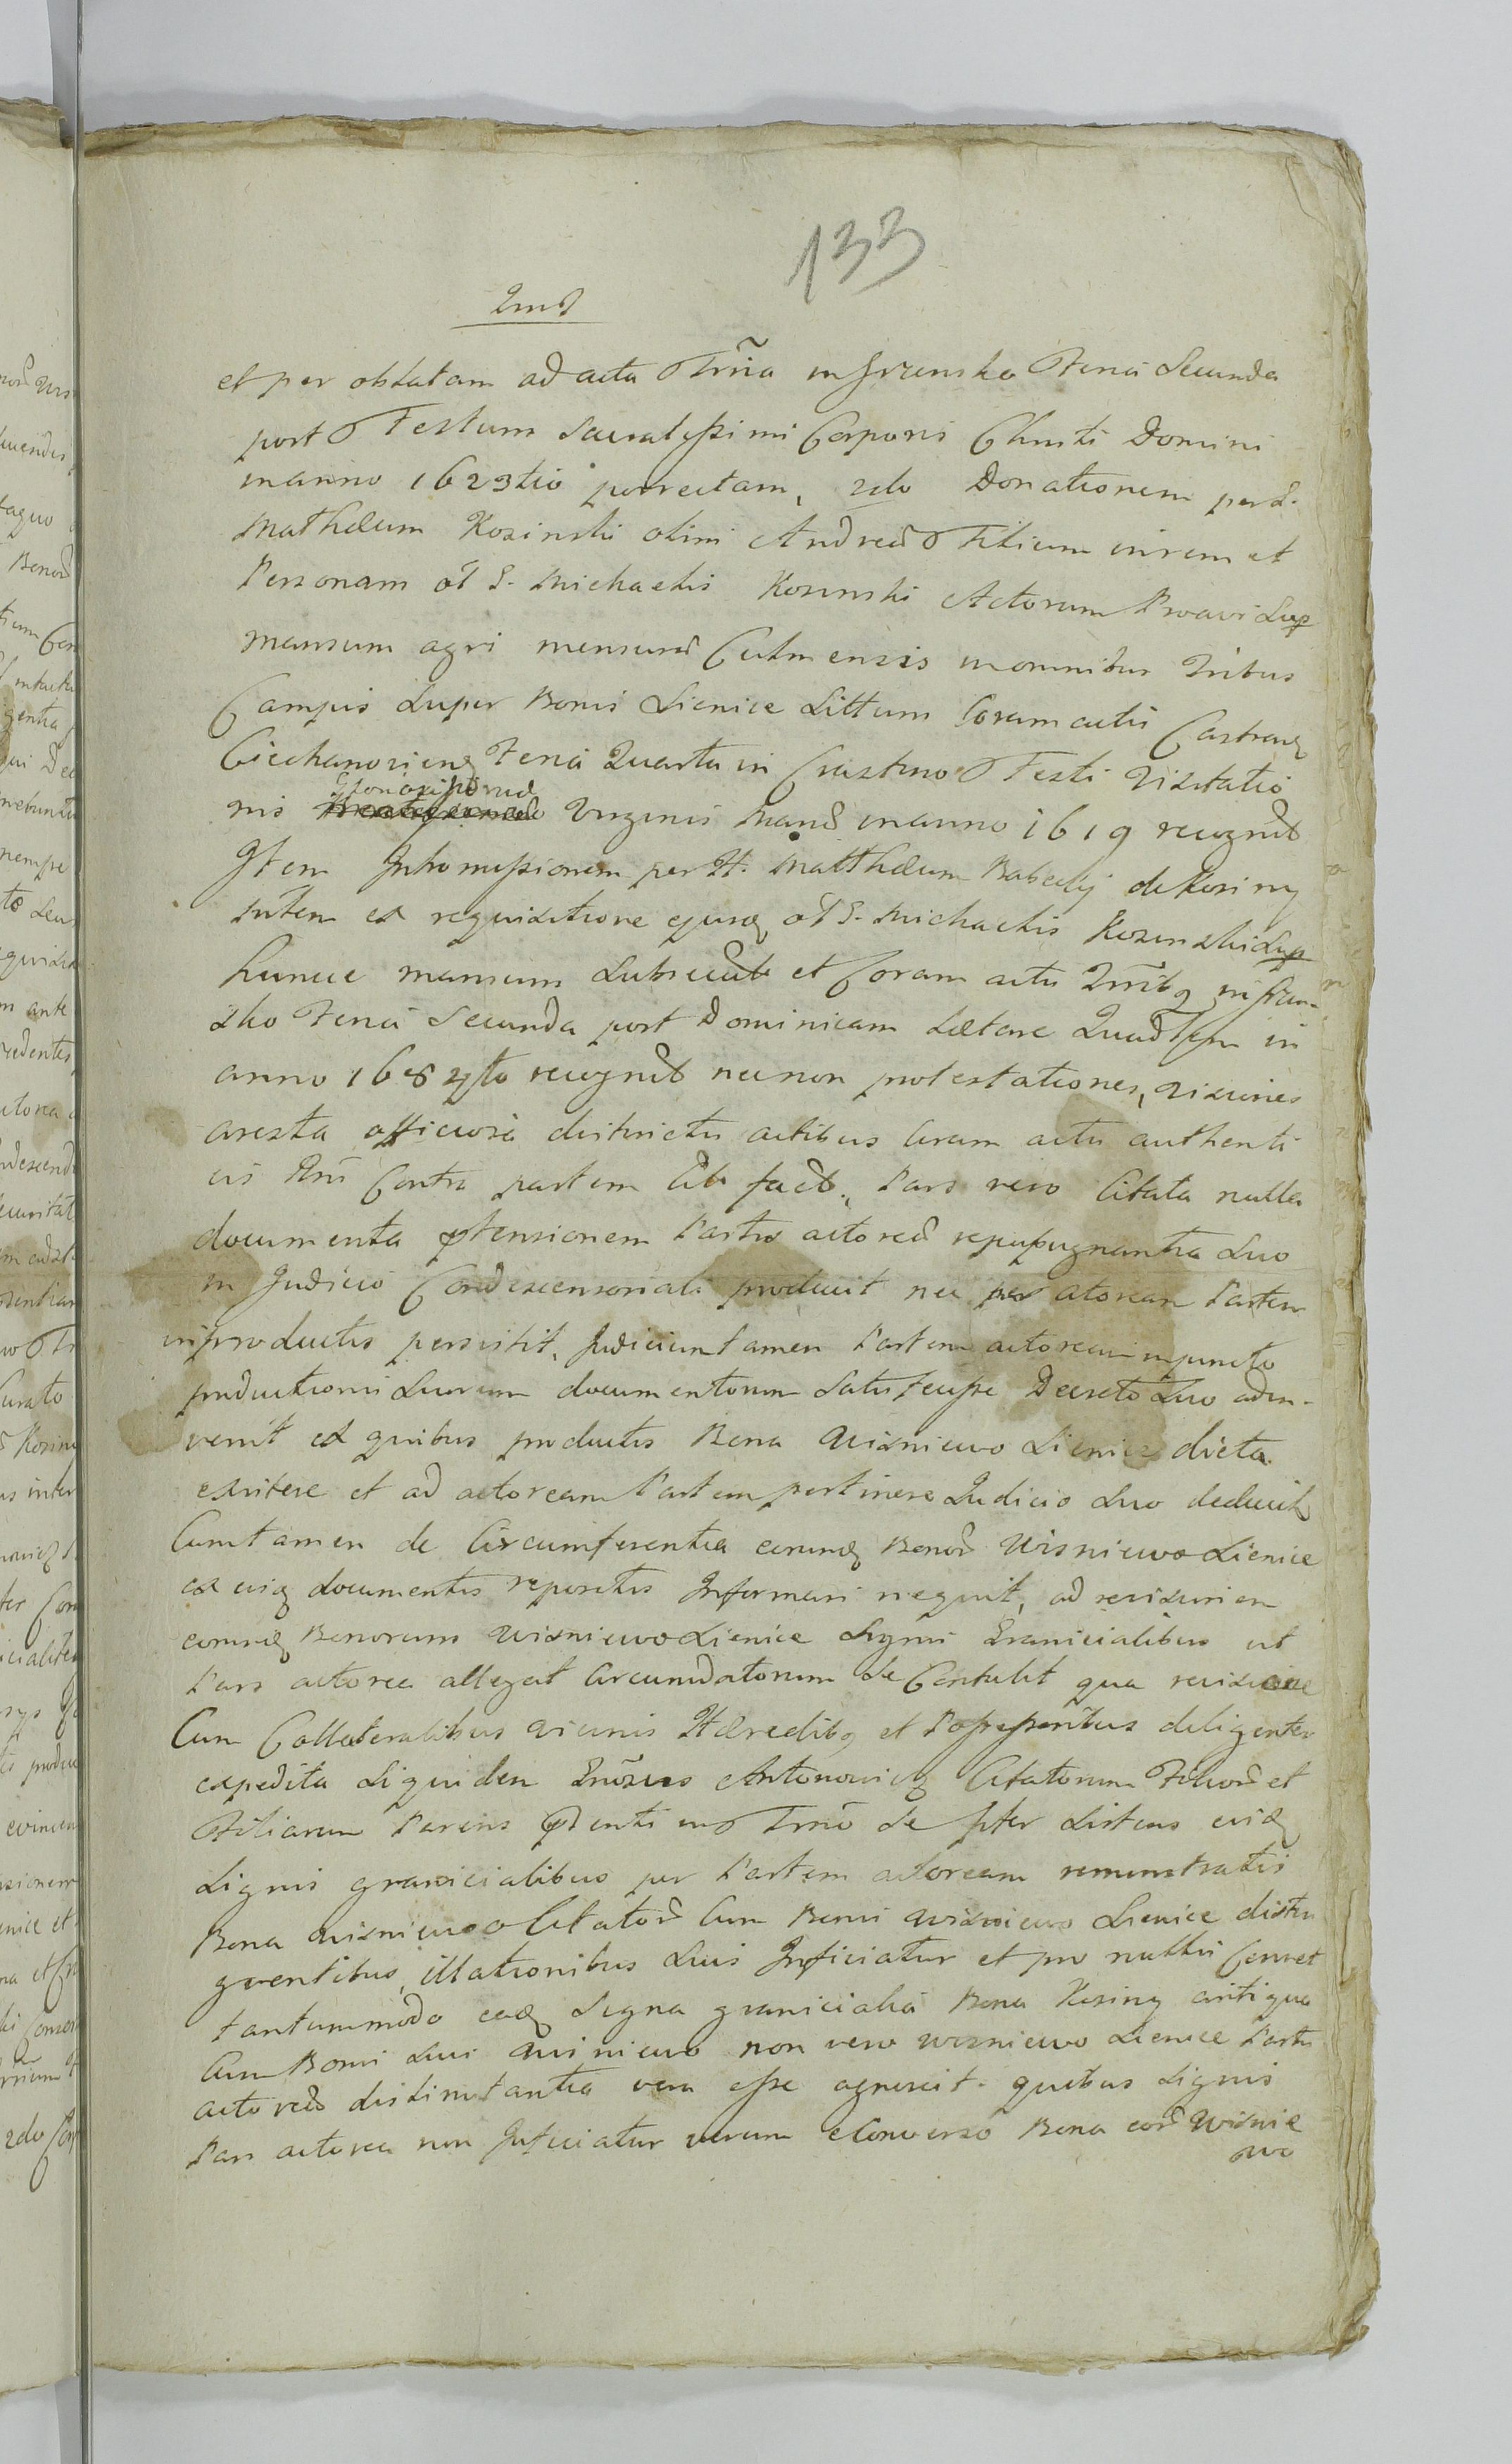 133
2md
et per oblatam ad acta Trria in Gransko Feria Secunda
post Festum Sacratissimi Corporis Christi Domini
in anno 1623tio porrectam, 2do Donationem per G.
Mathæum Kosinski olim Andreæ Filium in rem et
Personam ol G. Michaelis Kosinski Actorum Proavi Sup
mansum agri mensuræ Culmensis in omnibus Tribus
Campis super Bonis Lienice Sittum Coram actis Castren
Ciechanoviens Feria Quarta in Crastino Festi Visitatio
nis Gloriosissimæ Virginis Mariæ in anno 1619 recognit
Item Intromissionem per H. Matthæum Babecky de Kosiny
Mtem ex requisitione ejusd ol G. Michaelis Kosinski Sup
huncce mansum Subsecut et Coram actis Trribq in Gran
sko Feria Secunda post Dominicam Lætare Quadlem in
anno 1684to recognit nec non protestationes, visiones
aresta officiosa districtis actibus Coram actis authenti
cis Contra partem Cit fact. Pars vero Citata nulla
documenta prtensionem Partis actoreæ repupugnantia Suo
in Judicio Condescensoriali produxit nec per atoream Partem
in productis persistit, Judicium tamen Partem actoream in puncto
productionis Suorum documentorum Satis fecisse Decreto Suo adin-
venit ex quibus productis Bona Wisniewo Lienice dicta
existere et ad actoream Partem pertinere Judicio Suo deduxit
Cum tamen de Circumferentia eorund Benor Wisniewo Lienice
ex iisd documentis repositis Informari nequit, ad revisionem
eorund Bonorum Wisniewo Lienice Signis Granicialibus ut
Pars actorea allegat Circumdatorum se Contulit qua revisione
Cum Collateralibus vicinis Hæredibq et Possessoribus diligenter
expedita Siquidem Antonowicz Citatorum Filior et
Filiarum Parens prdenti in Trrio se pter Sistens iisd
Signis granicialibus per Partem actoream remonstratis
Bona Wisniewo Citator Cum Bonis Wisniewo Lienice distin
gventibus, illationibus Suis Inficiatur et pro nullis Censet
tantummodo ead Signa granicialia Bona Kosiny antiqua
Cum Bonis Suis Wisniewo non vero Wisniewo Lienice Partis
actoreæ distinctantia vera esse agnoscit. quibus Signis
Pars actorea non Inficiatur verum e Converso Bona eor Wisnie
wo